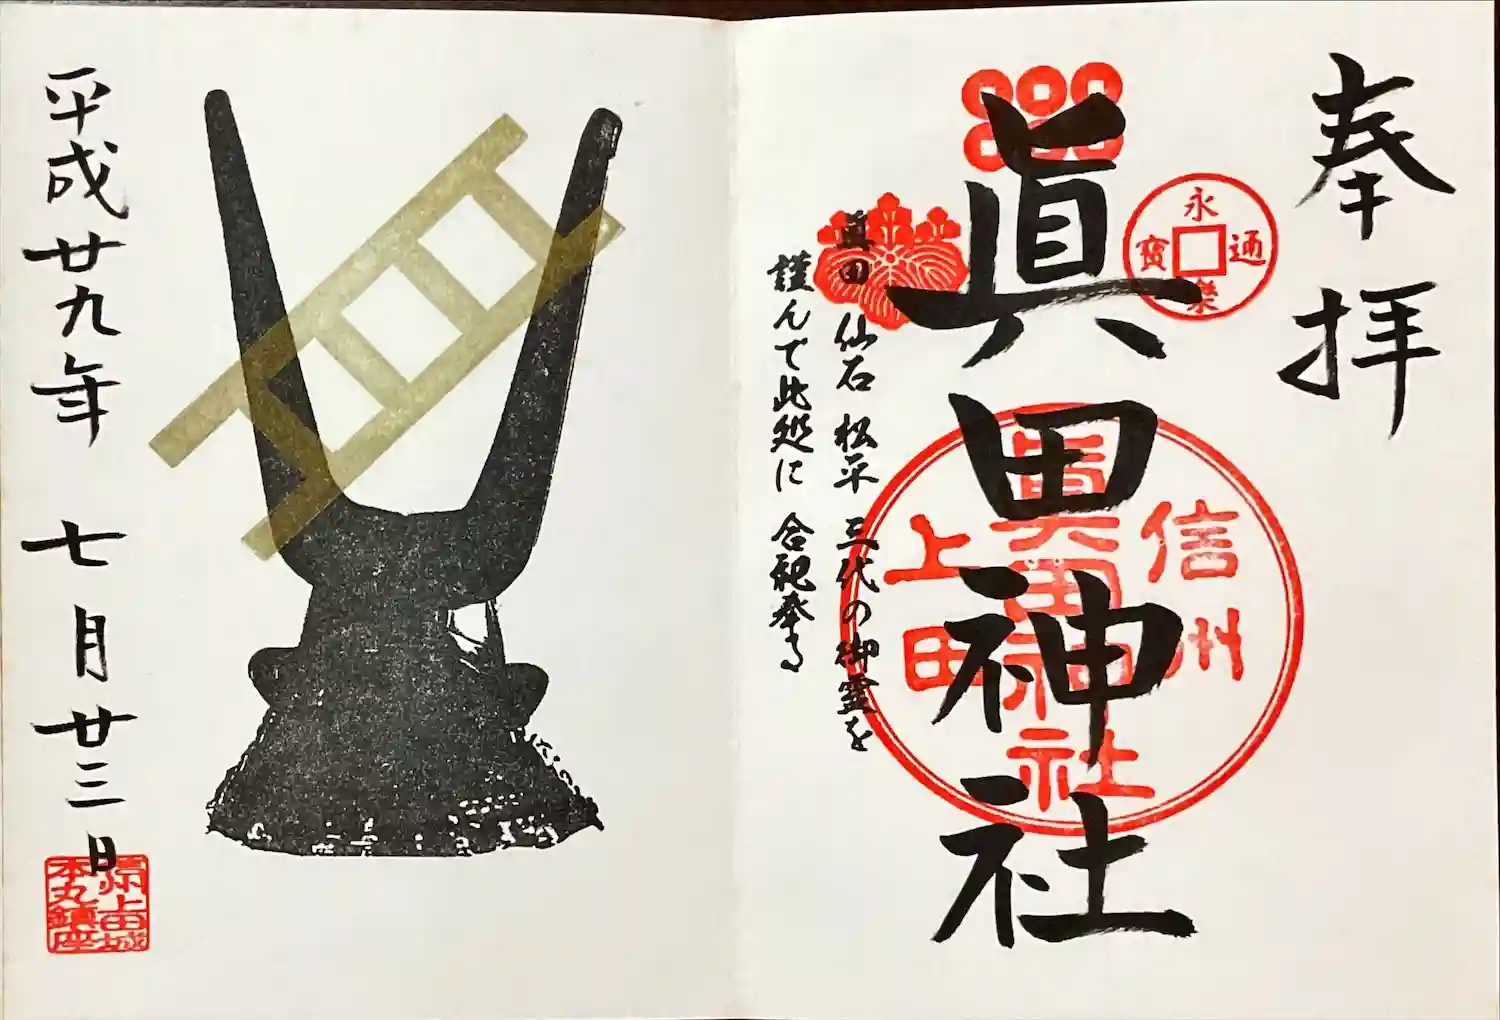 奉拝
永樂通寳
眞田神社
信州
眞田神社
上田
眞田 仙石 松平 三代の御霊を
謹んで此処に 合祀奉る
平成廿九年 七月廿三日
上田城
本丸鎮座